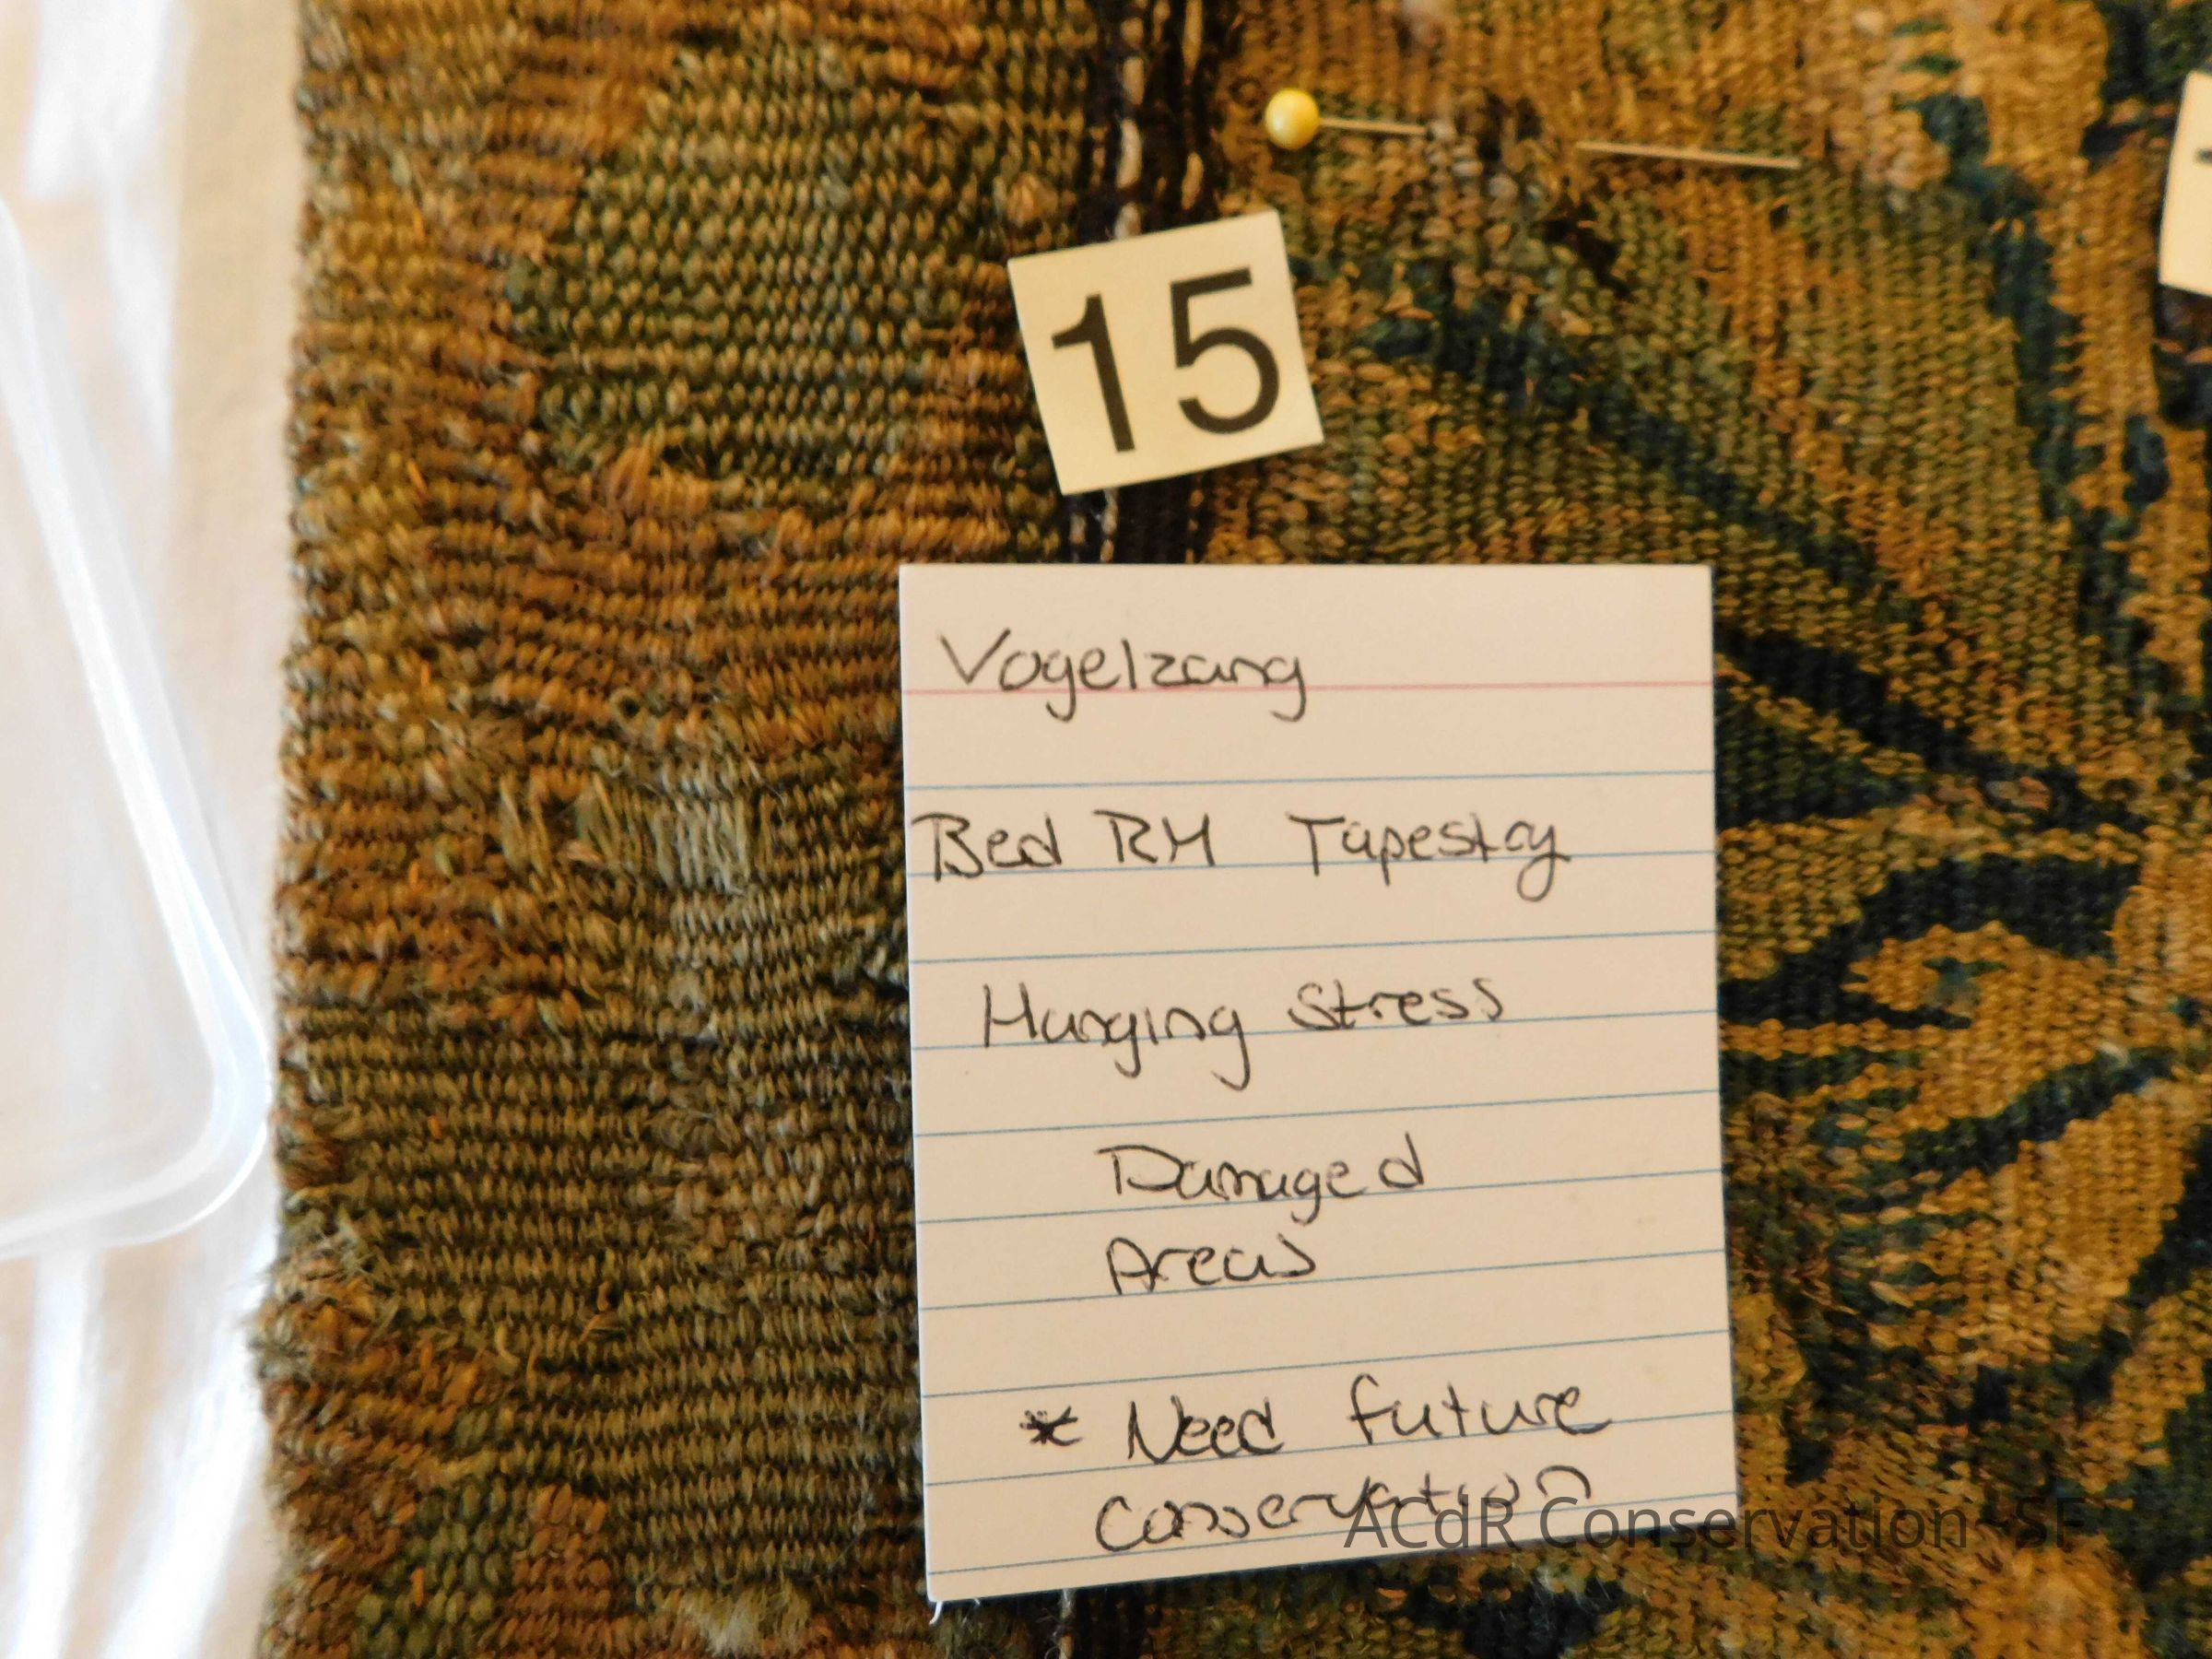 15
Vogelzang
Bed RM Tapestry
Hanging Stress
Damaged
Areas
* Need future
conservation
ACdR Conservation-SF